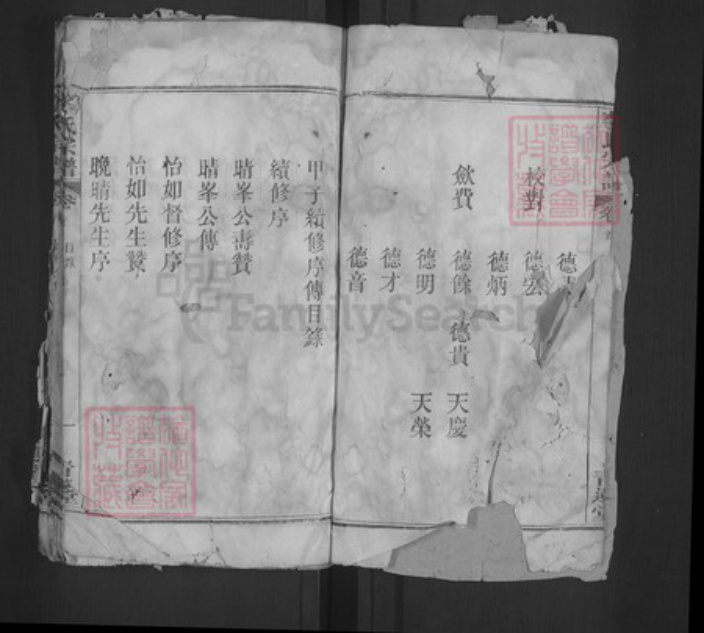 校對
德炳
歛費
德餘 德貴 天慶
德明 天榮
德才
德音
甲子續修序傳目錄
續修序
晴峯公壽贊
晴峯公傳
怡如督修序
怡如先生贊
晚晴先生序
氏宗譜
目錄
一
FamilySearch
譜學會